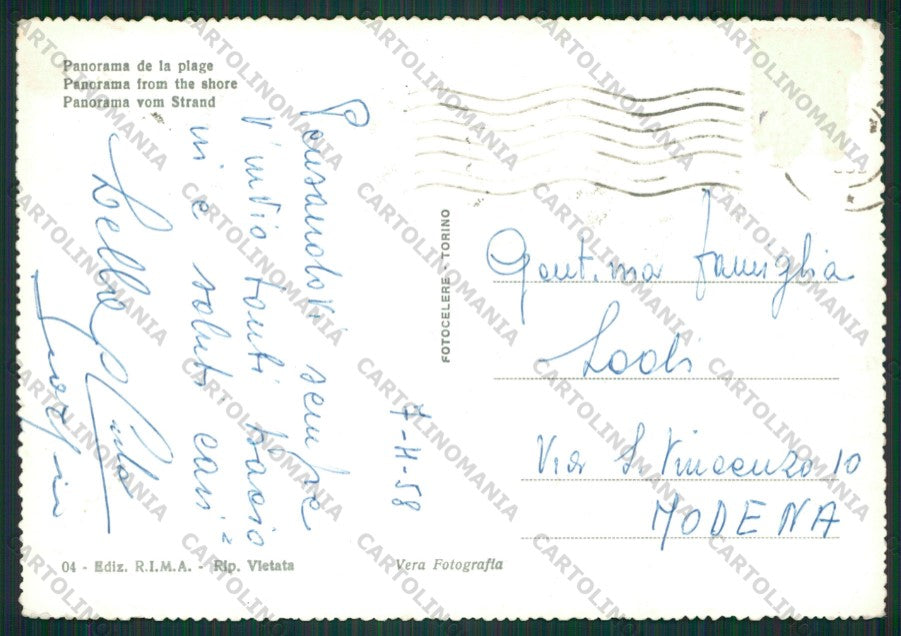 Panorama de la plage
Panorama from the shore
Panorama vom Strand
Pensandovi sempre
V'invio tanti bacio
ni e saluti cari
7-4-58
FOTOCELERE - TORINO
Gent.ma famiglia
Lodi
Via S. Vincenzo 10
MODENA
04 - Ediz. R.I.M.A. - Rip. Vietata
Vera Fotografia
CARTOLINOMANIA